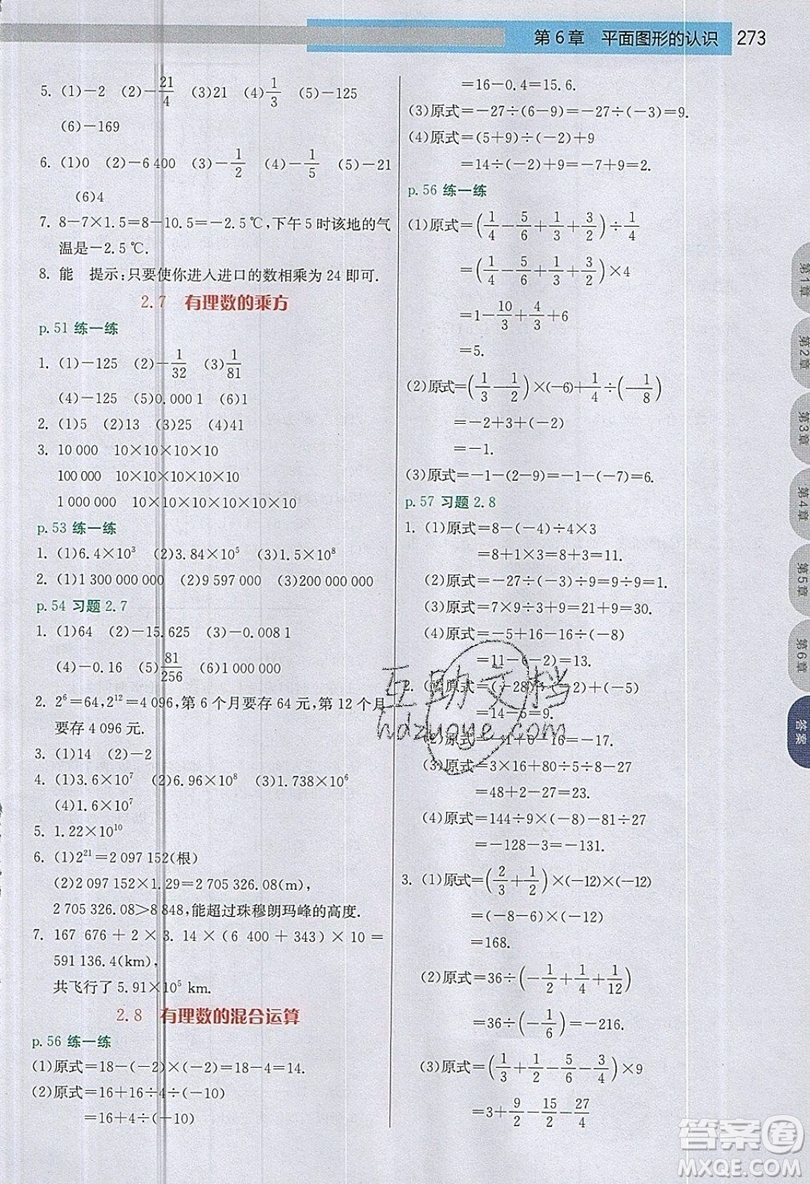 第6章 平面图形的认识 273
5. (1)-2 (2)-21/4 (3)21 (4)5 (5)-125
(6)-169
6. (1)0 (2)-6 400 (3)-1/2 (4)-1/5 (5)-21
(6)4
7. 8-7×1.5=8-10.5=-2.5 ℃,下午5时该地的气
温是-2.5 ℃.
8. 能 提示:只要使你进入进口的数相乘为24即可.
2.7 有理数的乘方
p.51 练一练
1. (1)-125 (2)-1/32 (3)1/81
(4)-125 (5)0.000 1 (6)1
2. (1)5 (2)13 (3)25 (4)41
3. 10 000 10×10×10×10
100 000 10×10×10×10×10
1 000 000 10×10×10×10×10×10
p.53 练一练
1. (1)6.4×10³ (2)3.84×10⁵ (3)1.5×10⁸
2. (1)1 300 000 000 (2)9 597 000 000
p.54 习题2.7
1. (1)64 (2)-15.625 (3)-0.008 1
(4)-0.16 (5)81/256 (6)-1
2. 2⁶=64,2¹²=4 096,第6个月要存64元,第12个月
要存4 096元.
3. (1)14 (2)-2
4. (1)3.6×10⁷ (2)6.96×10⁸ (3)1.738×10⁶
(4)1.6×10⁷
5. 1.22×10¹⁰
6. (1)2²¹=2 097 152(根)
(2)2 097 152×1.29=2 705 326.08(m),
2 705 326.08>8 848,能超过珠穆朗玛峰的高度.
7. 167 676+2×3.14×(6 400+343)×10=
591 136.4(km)
共飞行了5.91×10⁵ km.
2.8 有理数的混合运算
p.56 练一练
(1)原式=18-(-2)×(-2)=18-4=14.
(2)原式=16+16÷4÷(-10)
=16+4÷(-10)
=16-0.4=15.6.
(3)原式=-27÷(-6+3)=-27÷(-3)=9.
(4)原式=(5+9)÷(-2)+9
=14÷(-2)+9=-7+9=2.
p.56 练一练
(1)原式=(1/4-5/6+1/3+3/2)÷1/4
=(1/4-5/6+1/3+3/2)×4
=1-10/3+4/3+6
=5.
(2)原式=(1/3-1/2)×(-6)+1/4÷(-1/8)
=-2+3+(-2)
=-1.
(3)原式=-1-(-2-9)=-1-(-7)=6.
p.57 习题2.8
1. (1)原式=8-(-4)÷4×3
=8+1×3=8+3=11.
(2)原式=-27-(-3)÷(-1)=-27-3=-30.
(3)原式=7×9÷3+9=21+9=30.
(4)原式=-5+16-16÷(-8)
=11-(-2)=13.
2. (1)原式=(-28)÷(-2)+(-5)
=14-5=9.
(2)原式=-1+0-16=-17.
(3)原式=3×16+80÷5÷2-27
=48+2-27=23.
(4)原式=144÷9-9×16-81÷27
=-128-3=-131.
3. (1)原式=(2/3+1/2)×(-12)×(-12)
=(-8-6)×(-12)
=168.
(2)原式=36÷(-1/2+1/3)
=36÷(-1/6)=-216.
(3)原式=3+(1/3+1/2-5/6-9/4)÷
=3+9/2-15/2-27/4
第1章
第2章
第3章
第4章
第5章
第6章
答案
互助文档
hdzuoye.com
答案圈
MXQE.COM